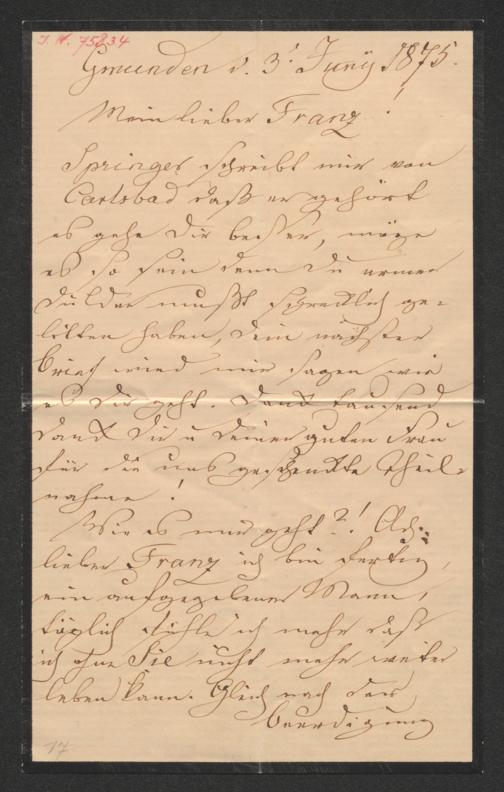 I. N. 75834
Gmunden d. 3t Juny 1875.
Mein lieber Franz!
Springer schreibt mir von
Carlsbad daß er gehört
es gehe Dir besser, möge
es so sein denn du armer
Dulder mußt schrecklich ge=
litten haben, dein nächster
Brief wird mir sagen wie
es Dir geht. Dank tausend
Dank Dir u deiner guten Frau
für die uns geschenkte Theil=
nahme!
Wie es mir geht?! Ach
lieber Franz ich bin fertig,
ein aufgegebener Mann,
täglich fühle ich mehr daß
ich ohne Sie nicht mehr weiter
leben kann. Gleich nach der
Beerdigung
17